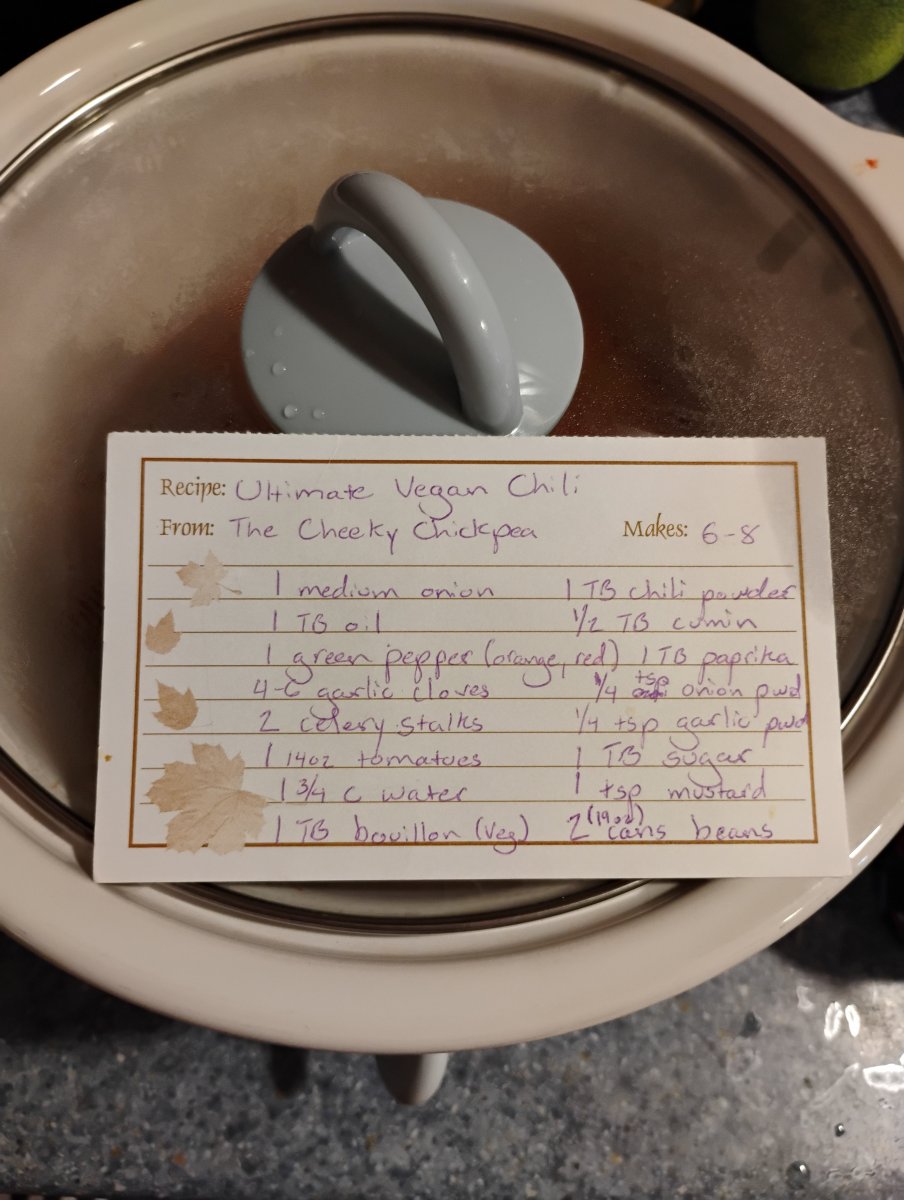 Recipe: Ultimate Vegan Chili
From: The Cheeky Chickpea Makes: 6-8
1 medium onion 1 TB chili powder
1 TB oil 1/2 TB cumin
1 green pepper (orange, red) 1 TB paprika
4-6 garlic cloves 1/4 tsp onion pwd
2 celery stalks 1/4 tsp garlic pwd
1 14oz tomatoes 1 TB sugar
1 3/4 c water 1 tsp mustard
1 TB bouillon (veg) 2 (19oz) cans beans